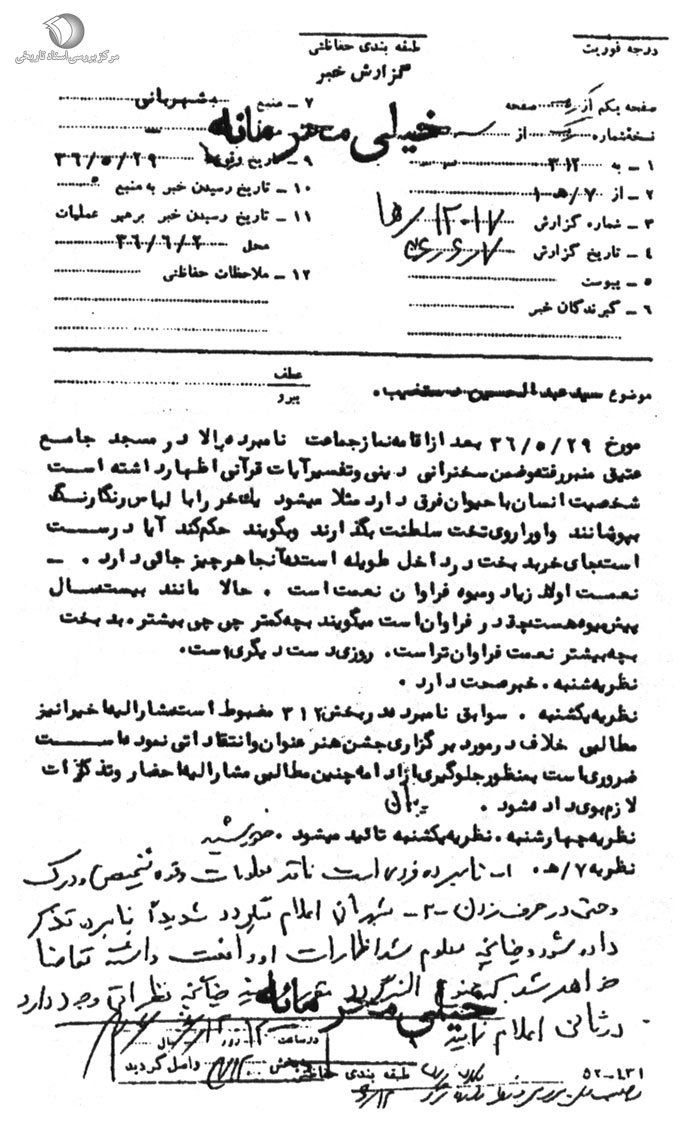 مرکز بررسی اسناد تاریخی
درجه فوریت
طبقه بندی حفاظتی
گزارش خبر
صفحه یکم از صفحه
نسخه شماره از
۱ ـ به ۳۱۲
۲ ـ از ۷/ه‍
۳ ـ شماره گزارش
۴ ـ تاریخ گزارش
۵ ـ پیوست
۶ ـ گیرندگان خبر
۷ ـ منبع شهربانی
خیلی محرمانه
۹ ـ تاریخ وقوع ۳۶/۵/۲۹
۱۰ ـ تاریخ رسیدن خبر به منبع
۱۱ ـ تاریخ رسیدن خبر برهبر عملیات
محل ۳۶/۶/۲
۱۲ ـ ملاحظات حفاظتی
موضوع سید عبدالحسین دستغیب.
عطف
پیرو
مورخ ۳۶/۵/۲۹ بعد از اقامه نماز جماعت نامبرده بالا در مسجد جامع
عتیق منبر رفته و ضمن سخنرانی دینی و تفسیر آیات قرآنی اظهار داشته است
شخصیت انسان با حیوان فرق دارد مثلا میشود یك خر را با لباس رنگارنگ
بپوشانند و او را روی تخت سلطنت بگذارند و بگویند حکم کند آیا درست
است جای خر بدبخت در داخل طویله است که آنجا هر چیز جائی دارد . ـ
نعمت اولاد زیاد و میوه فراوان نعمت است . حالا مانند بیست سال
پیش میوه هست چقدر فراوان است میگویند بچه کمتر چی چی بیشتر . بدبخت
بچه بیشتر نعمت فراوان تر است . روزی دست دیگری است .
نظریه شنبه . خبر صحت دارد .
نظریه یکشنبه . سوابق نامبرده در بخش ۳۱۲ مضبوط است مشارالیه اخیرا نیز
مطالبی خلاف در مورد برگزاری جشن هنر عنوان و انتقاداتی نموده است
ضروری است بمنظور جلوگیری از ادامه چنین مطالبی مشارالیه احضار و تذکرات
لازم بوی داده شود .
نظریه چهارشنبه . نظریه یکشنبه تائید میشود .
نظریه ۷/ه‍ . ۱ـ نامبرده فردی است فاقد معلومات و قوه تشخیص و درک
وحتی در حرف زدن ـ۲ـ بتهران اعلام گردد شدیداً نامبرده تذکر
داده شود و چنانچه معلوم شد اظهارات او واقعیت داشته تقاضا
خواهد شد چنانچه نظراتی وجود دارد
خیلی محرمانه
در ثانی اعلام نمایند
در ساعت روز سال
بخش واصل گردید
طبقه بندی حفاظتی
۵۲-۴۳۱